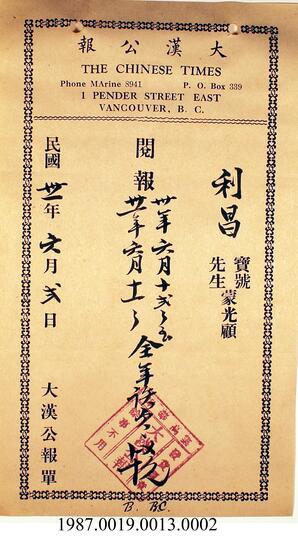 大漢公報
THE CHINESE TIMES
Phone MArine 8941 P. O. Box 339
1 PENDER STREET EAST
VANCOUVER, B. C.
利昌 寶號 先生 蒙光顧
閱報
卅年六月十弍
卅一年六月十一
全年
民國卅一年六月弍日
大漢公報單
B. BC.
1987.0019.0013.0002